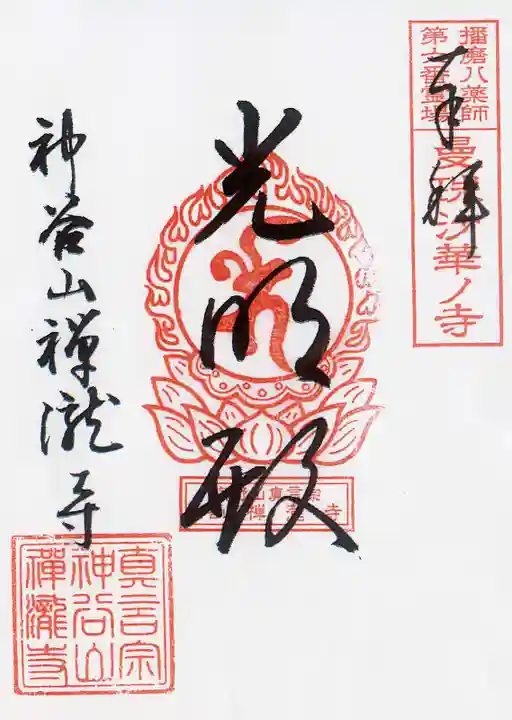 播磨八薬師
第六番霊場
曼珠沙華ノ寺
奉拝
光明殿
山真言宗
禅瀧寺
神谷山禅瀧寺
真言宗
神谷山
禪瀧寺